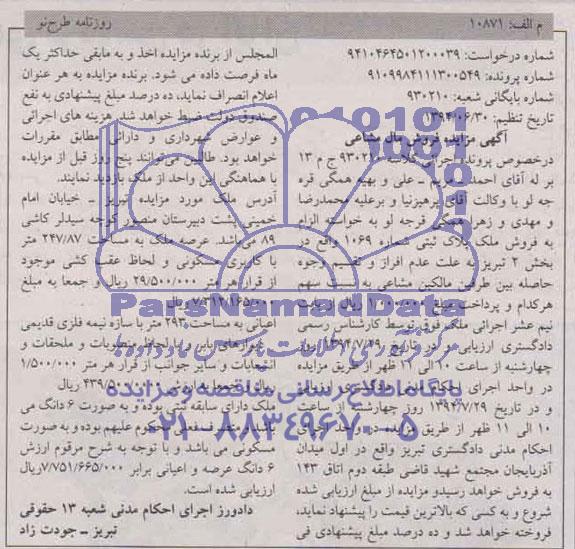 م الف: ۱۰۸۷۱
روزنامه طرح‌نو
شماره درخواست: ۹۴۱۰۴۶۴۵۰۱۲۰۰۰۳۹
شماره پرونده: ۹۱۰۹۹۸۴۱۱۱۳۰۰۵۴۹
شماره بایگانی شعبه: ۹۳۰۲۱۰
تاریخ تنظیم: ۱۳۹۴/۰۶/۳۰
آگهی مزایده فروش مال مشاعی
درخصوص پرونده اجرائی کلاسه ۹۳۰۲۱۰ ج م ۱۳
بر له آقای احمد، مریم ـ علی و بهیه همگی قره
جه لو با وکالت آقای پرهیزنیا و برعلیه محمدرضا
و مهدی و زهرا همگی قرجه لو به خواسته الزام
به فروش ملک پلاک ثبتی شماره ۱۰۶۹ واقع در
بخش ۲ تبریز به علت عدم افراز و تقسیم وجوه
حاصله بین طرفین مالکین مشاعی به نسبت سهم
هرکدام و پرداخت مبلغ ریال از بابت
نیم عشر اجرائی ملک فوق توسط کارشناس رسمی
دادگستری ارزیابی در تاریخ ۱۳۹۴/۷/۲۹ روز
چهارشنبه از ساعت ۱۰ الی ۱۱ ظهر از طریق مزایده
در واحد اجرای احکام مدنی دادگستری ارزیابی
و در تاریخ ۱۳۹۴/۷/۲۹ روز چهارشنبه از ساعت
۱۰ الی ۱۱ ظهر از طریق مزایده در واحد اجرای
احکام مدنی دادگستری تبریز واقع در اول میدان
آذربایجان مجتمع شهید قاضی طبقه دوم اتاق ۱۴۳
به فروش خواهد رسیدو مزایده از مبلغ ارزیابی شده
شروع و به کسی که بالاترین قیمت را پیشنهاد نماید،
فروخته خواهد شد و ده درصد مبلغ پیشنهادی فی
المجلس از برنده مزایده اخذ و به مابقی حداکثر یک
ماه فرصت داده می شود. برنده مزایده به هر عنوان
اعلام انصراف نماید، ده درصد مبلغ پیشنهادی به نفع
صندوق دولت ضبط خواهد شد. هزینه های اجرائی
و عوارض شهرداری و دارائی مطابق مقررات
خواهد بود. طالبین می‌توانند پنج روز قبل از مزایده
با هماهنگی این واحد از ملک بازدید نمایند.
آدرس ملک مورد مزایده تبریز ـ خیابان امام
خمینی پشت دبیرستان منصور کوچه سیدلر کاشی
۸۹ می‌باشد. عرصه ملک به مساحت ۲۴۷/۸۷ متر
با کاربری مسکونی و لحاظ عقب کشی موجود
از قرار هر متر ۲۹/۵۰۰/۰۰۰ ریال و جمعا به مبلغ
۷/۳۱۲/۱۶۵/۰۰۰ ریال
اعیانی به مساحت ۲۹۳ متر با سازه نیمه فلزی قدیمی
دیوارهای باربر با لحاظ منصوبات و ملحقات و
انشعابات و سایر جوانب از قرار هر متر ۱/۵۰۰/۰۰۰
ریال و جمعا به ارزش ۴۳۹/۵۰۰/۰۰۰ ریال
ملک دارای سابقه ثبتی بوده و به صورت ۶ دانگ می
باشد. متصرف فعلی محکوم علیهم بوده و به صورت
مسکونی می باشد و با توجه به شرح مرقوم ارزش
۶ دانگ عرصه و اعیانی برابر ۷/۷۵۱/۶۶۵/۰۰۰ریال
ارزیابی شده است.
دادورز اجرای احکام مدنی شعبه ۱۳ حقوقی
تبریز ـ جودت زاد
ParsNamadData
مرکز فرآوری اطلاعات پارس نماد داده‌ها
پایگاه اطلاع رسانی مناقصه و مزایده
۰۲۱-۸۸۳۴۹۶۷۰-۵